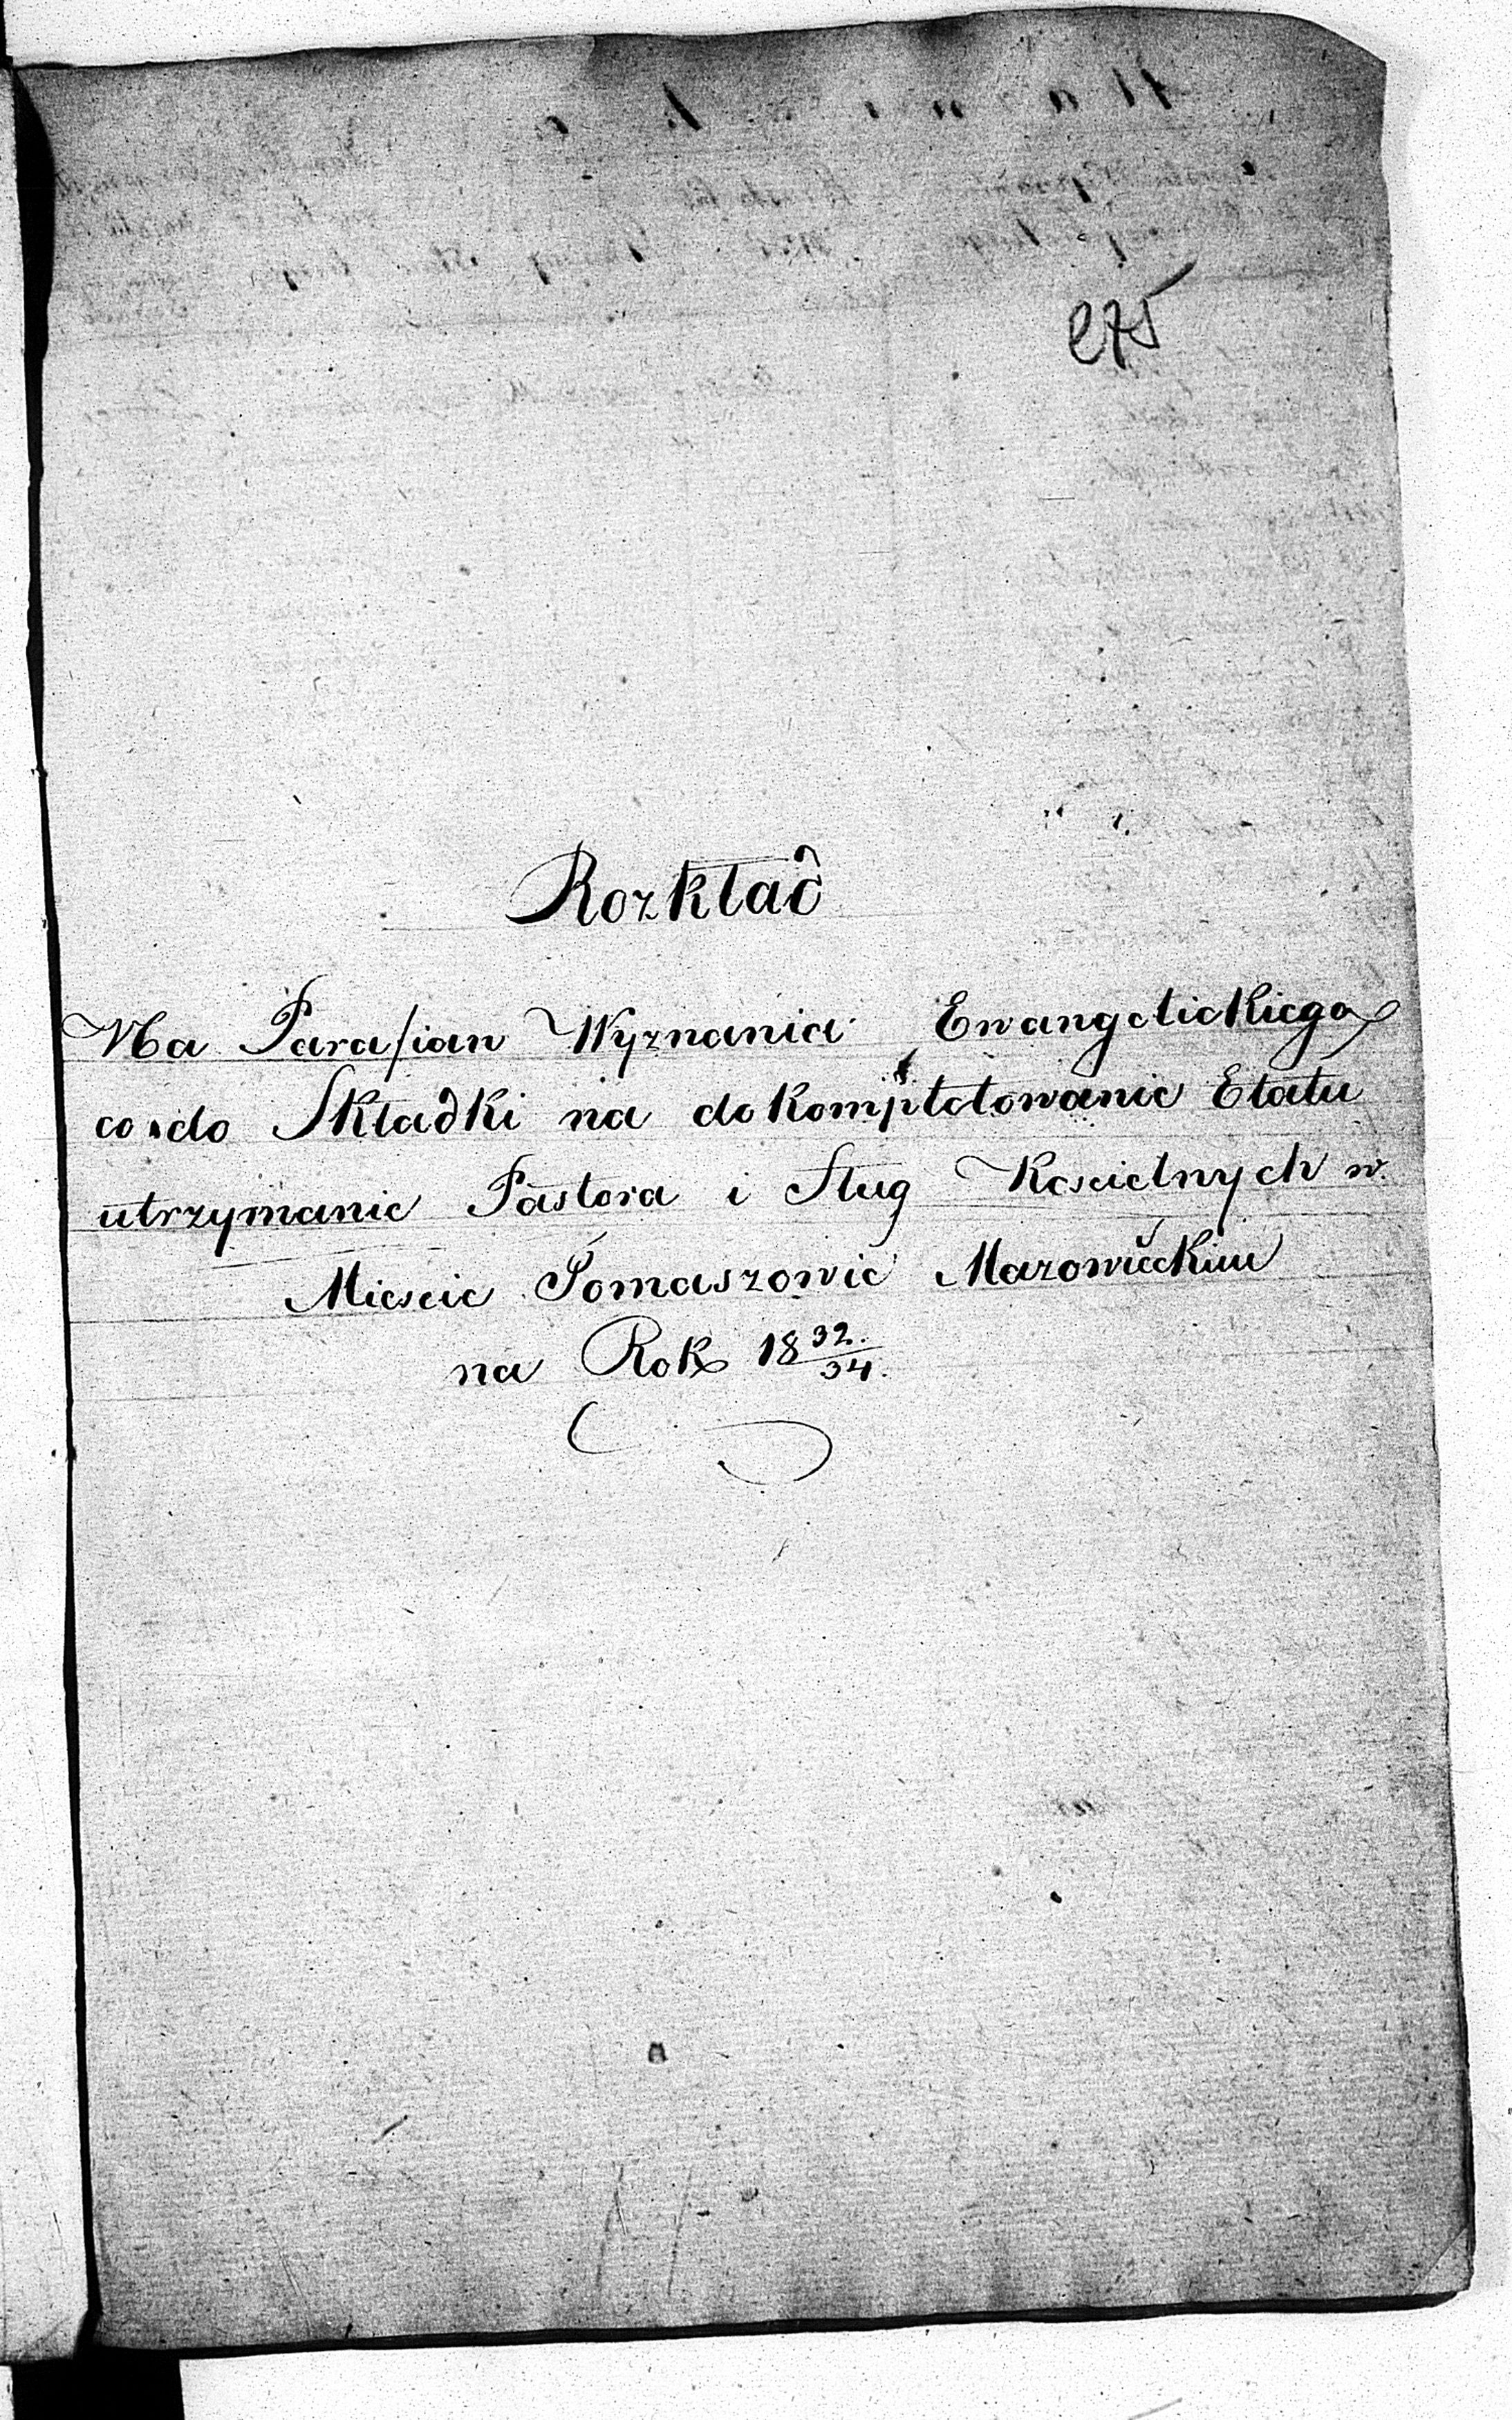 275
Rozkład
Na Parafian Wyznania Ewangelickiego
co do Składki na dokompletowanie Etatu
utrzymanie Pastora i Sług Koscielnych w
Miescie Tomaszowie Mazowieckim
na Rok 18 32/34.